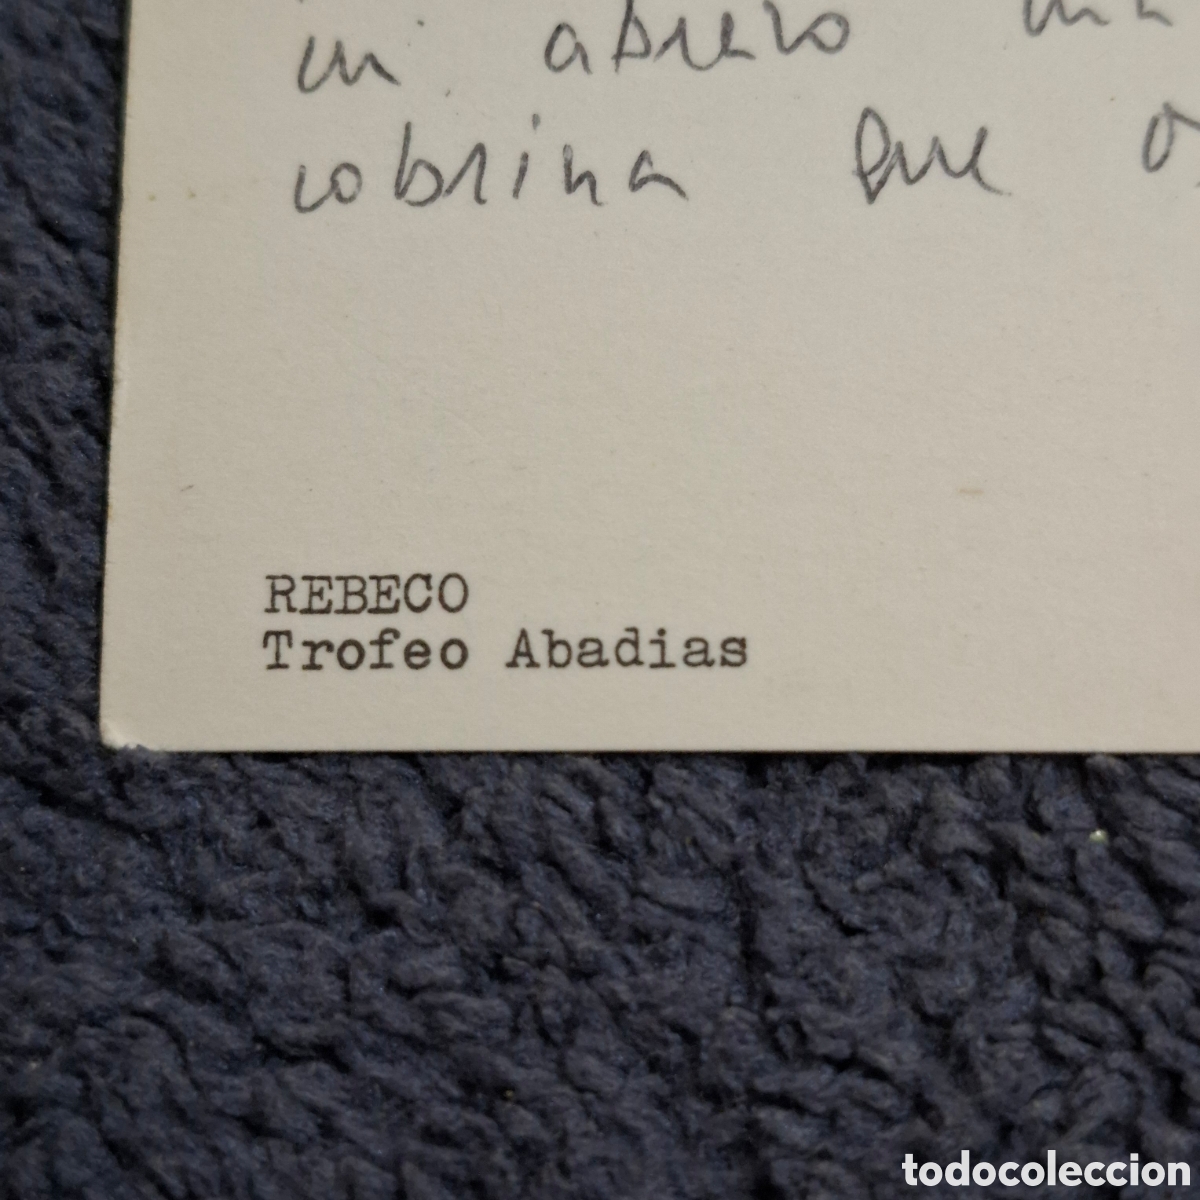 un abrazo
sobrina que
REBECO
Trofeo Abadias
todocoleccion